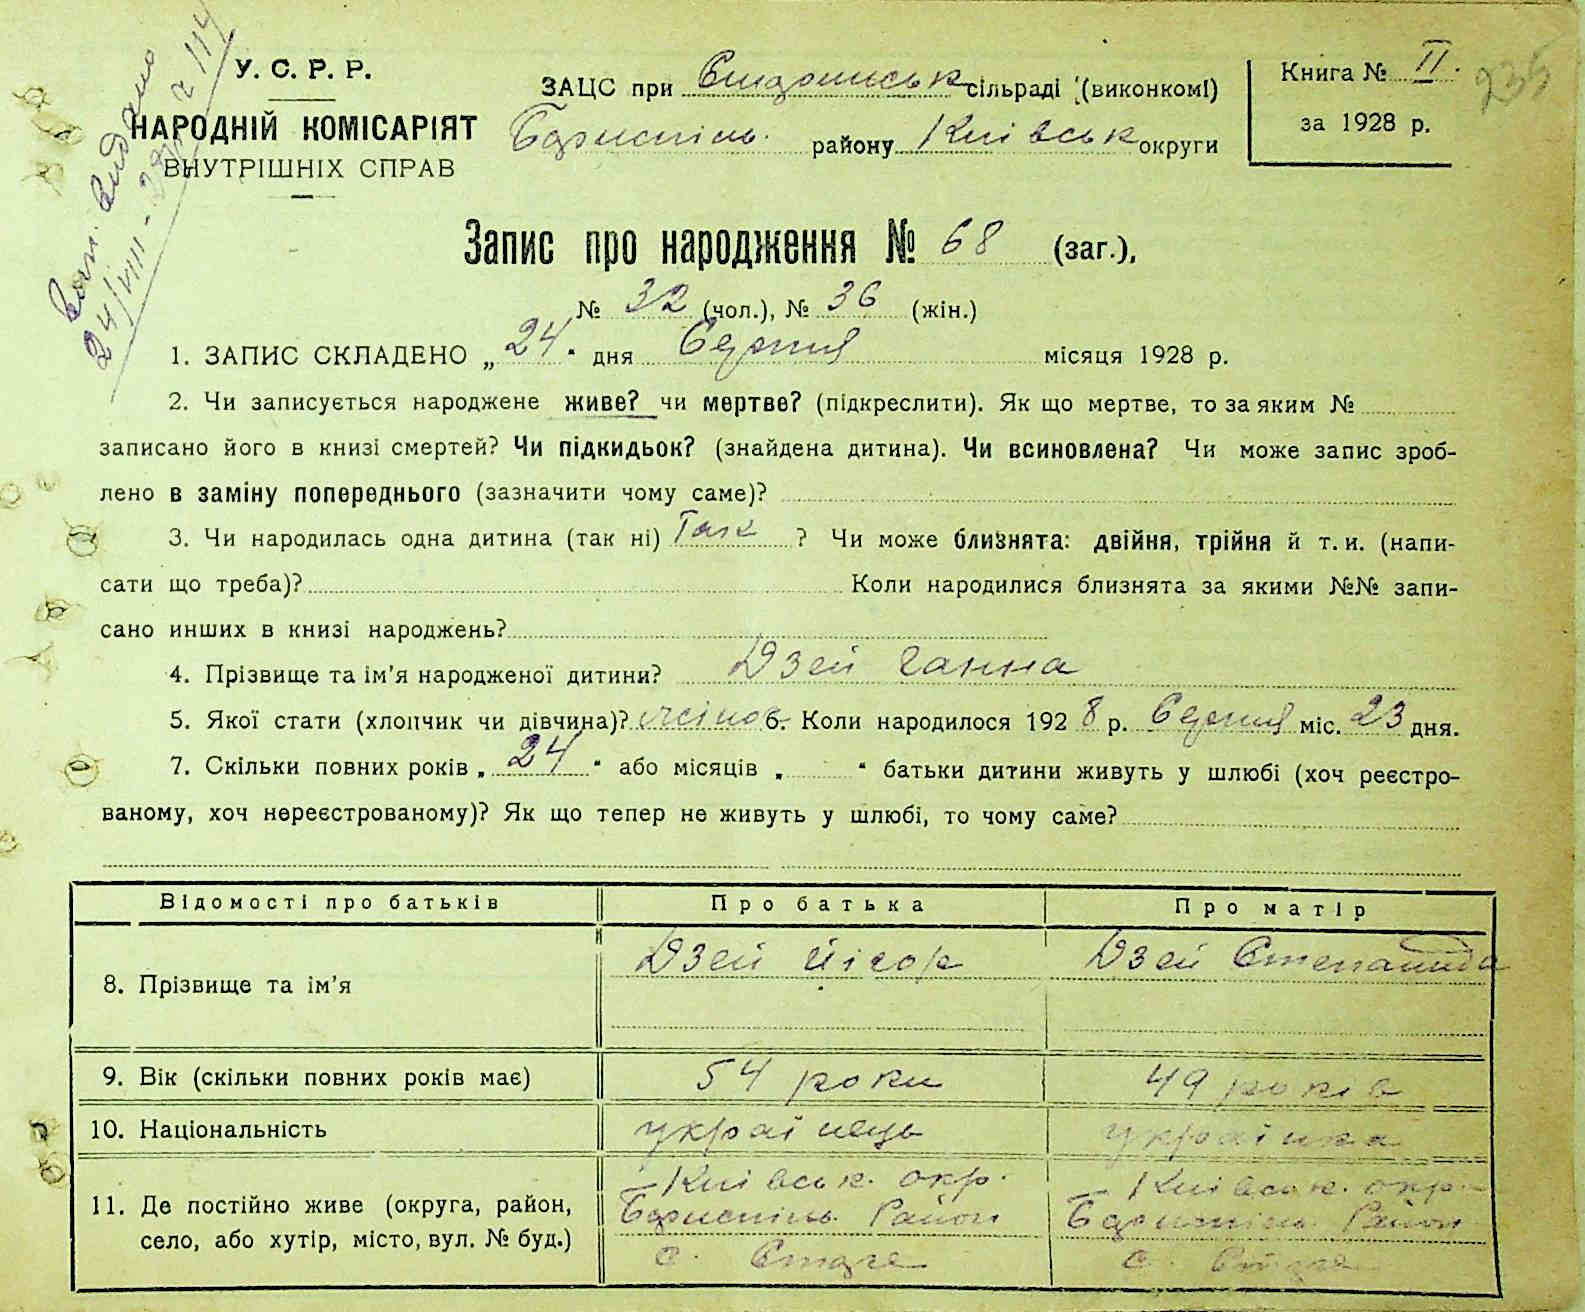 У. С. Р. Р.
НАРОДНІЙ КОМІСАРІЯТ
ВНУТРІШНІХ СПРАВ
Вип. видано
24/VIII - 114
ЗАЦС при сільраді (виконкомі)
Бориспіль. району Київськ округи
Книга № II.
за 1928 р.
235
Запис про народження № 68 (заг.),
№ 32 (чол.), № 36 (жін.)
1. ЗАПИС СКЛАДЕНО „ 24 " дня Серпня місяця 1928 р.
2. Чи записується народжене живе? чи мертве? (підкреслити). Як що мертве, то за яким №
записано його в книзі смертей? Чи підкидьок? (знайдена дитина). Чи всиновлена? Чи може запис зроб-
лено в заміну попереднього (зазначити чому саме)?
3. Чи народилась одна дитина (так ні) Так ? Чи може близнята: двійня, трійня й т. и. (напи-
сати що треба)? Коли народилися близнята за якими №№ запи-
сано инших в книзі народжень?
4. Прізвище та ім'я народженої дитини? Дзей Ганна
5. Якої стати (хлопчик чи дівчина)? жіноч 6. Коли народилося 192 8 р. Серпня міс. 23 дня.
7. Скільки повних років „ 24 " або місяців „ " батьки дитини живуть у шлюбі (хоч реєстро-
ваному, хоч нереєстрованому)? Як що тепер не живуть у шлюбі, то чому саме?
Відомості про батьків Про батька Про матір
8. Прізвище та ім'я Дзей Дзей Степанида
9. Вік (скільки повних років має) 54 роки 49 років
10. Національність українець українка
11. Де постійно живе (округа, район, село, або хутір, місто, вул. № буд.) Київськ. окр. Київськ. окр.
Бориспіль. Район Бориспіль. Район
с. Старе с. Старе